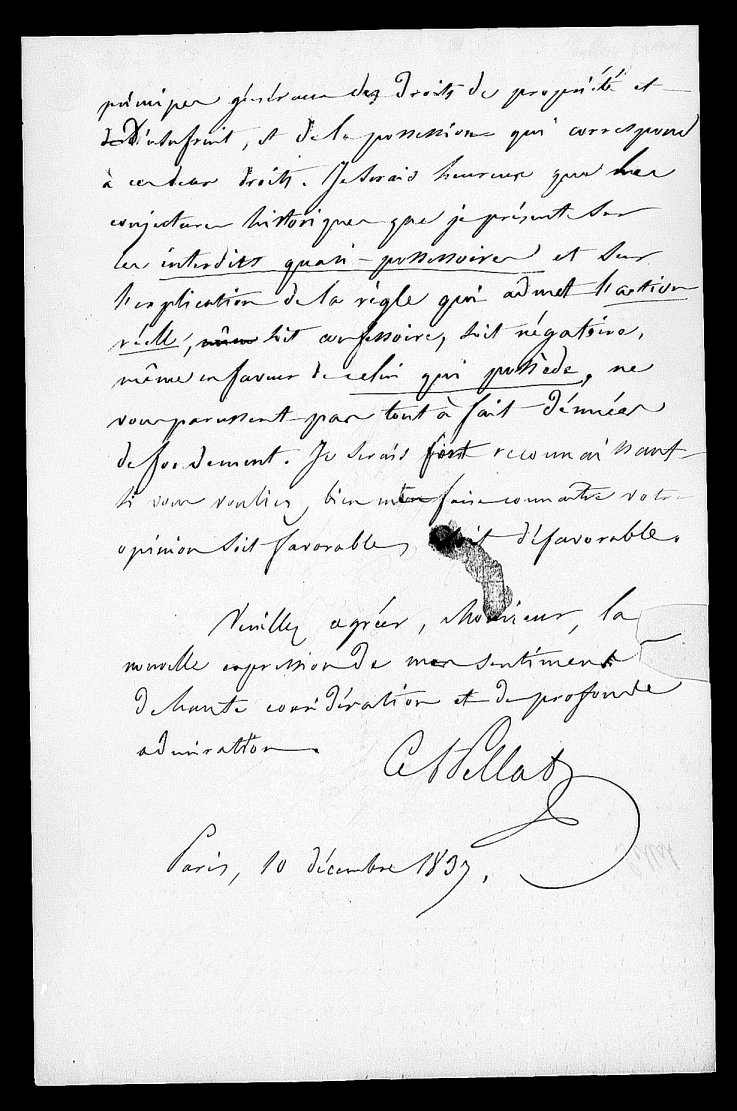 principes généraux des Droits de propriété et
d'usufruit, et de la possession qui correspond
à ces deux droits. Je serais heureux que les
conjectures historiques que je présente sur
les interdits quasi-possessoires et sur
l'explication de la règle qui admet l'action
réelle, soit confessoire, soit négatoire,
même en faveur de celui qui possède, ne
vous parussent pas tout à fait dénuées
de fondement. Je serais fort reconnaissant
si vous vouliez bien me faire connaître votre
opinion soit favorable, soit défavorable.
Veuillez agréer, Monsieur, la
nouvelle expression de mes sentiments
de haute considération et de profonde
admiration.
C A Pellat
Paris, 10 décembre 1837.